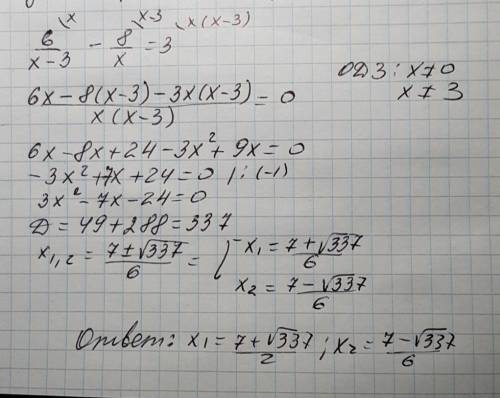 \x \x-3 \x(x-3)
6/(x-3) - 8/x = 3
ОДЗ: x≠0
x≠3
(6x-8(x-3)-3x(x-3))/(x(x-3)) = 0
6x-8x+24-3x²+9x=0
-3x²+7x+24=0 /:(-1)
3x²-7x-24=0
D=49+288=337
x₁,₂ = (7±√337)/6 = [ x₁ = (7+√337)/6
x₂ = (7-√337)/6
Ответ: x₁ = (7+√337)/2 ; x₂ = (7-√337)/6